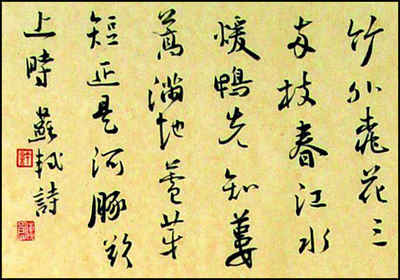 竹外桃花三
兩枝春江水
暖鴨先知蔞
蒿滿地蘆芽
短正是河豚欲
上時 蘇軾詩